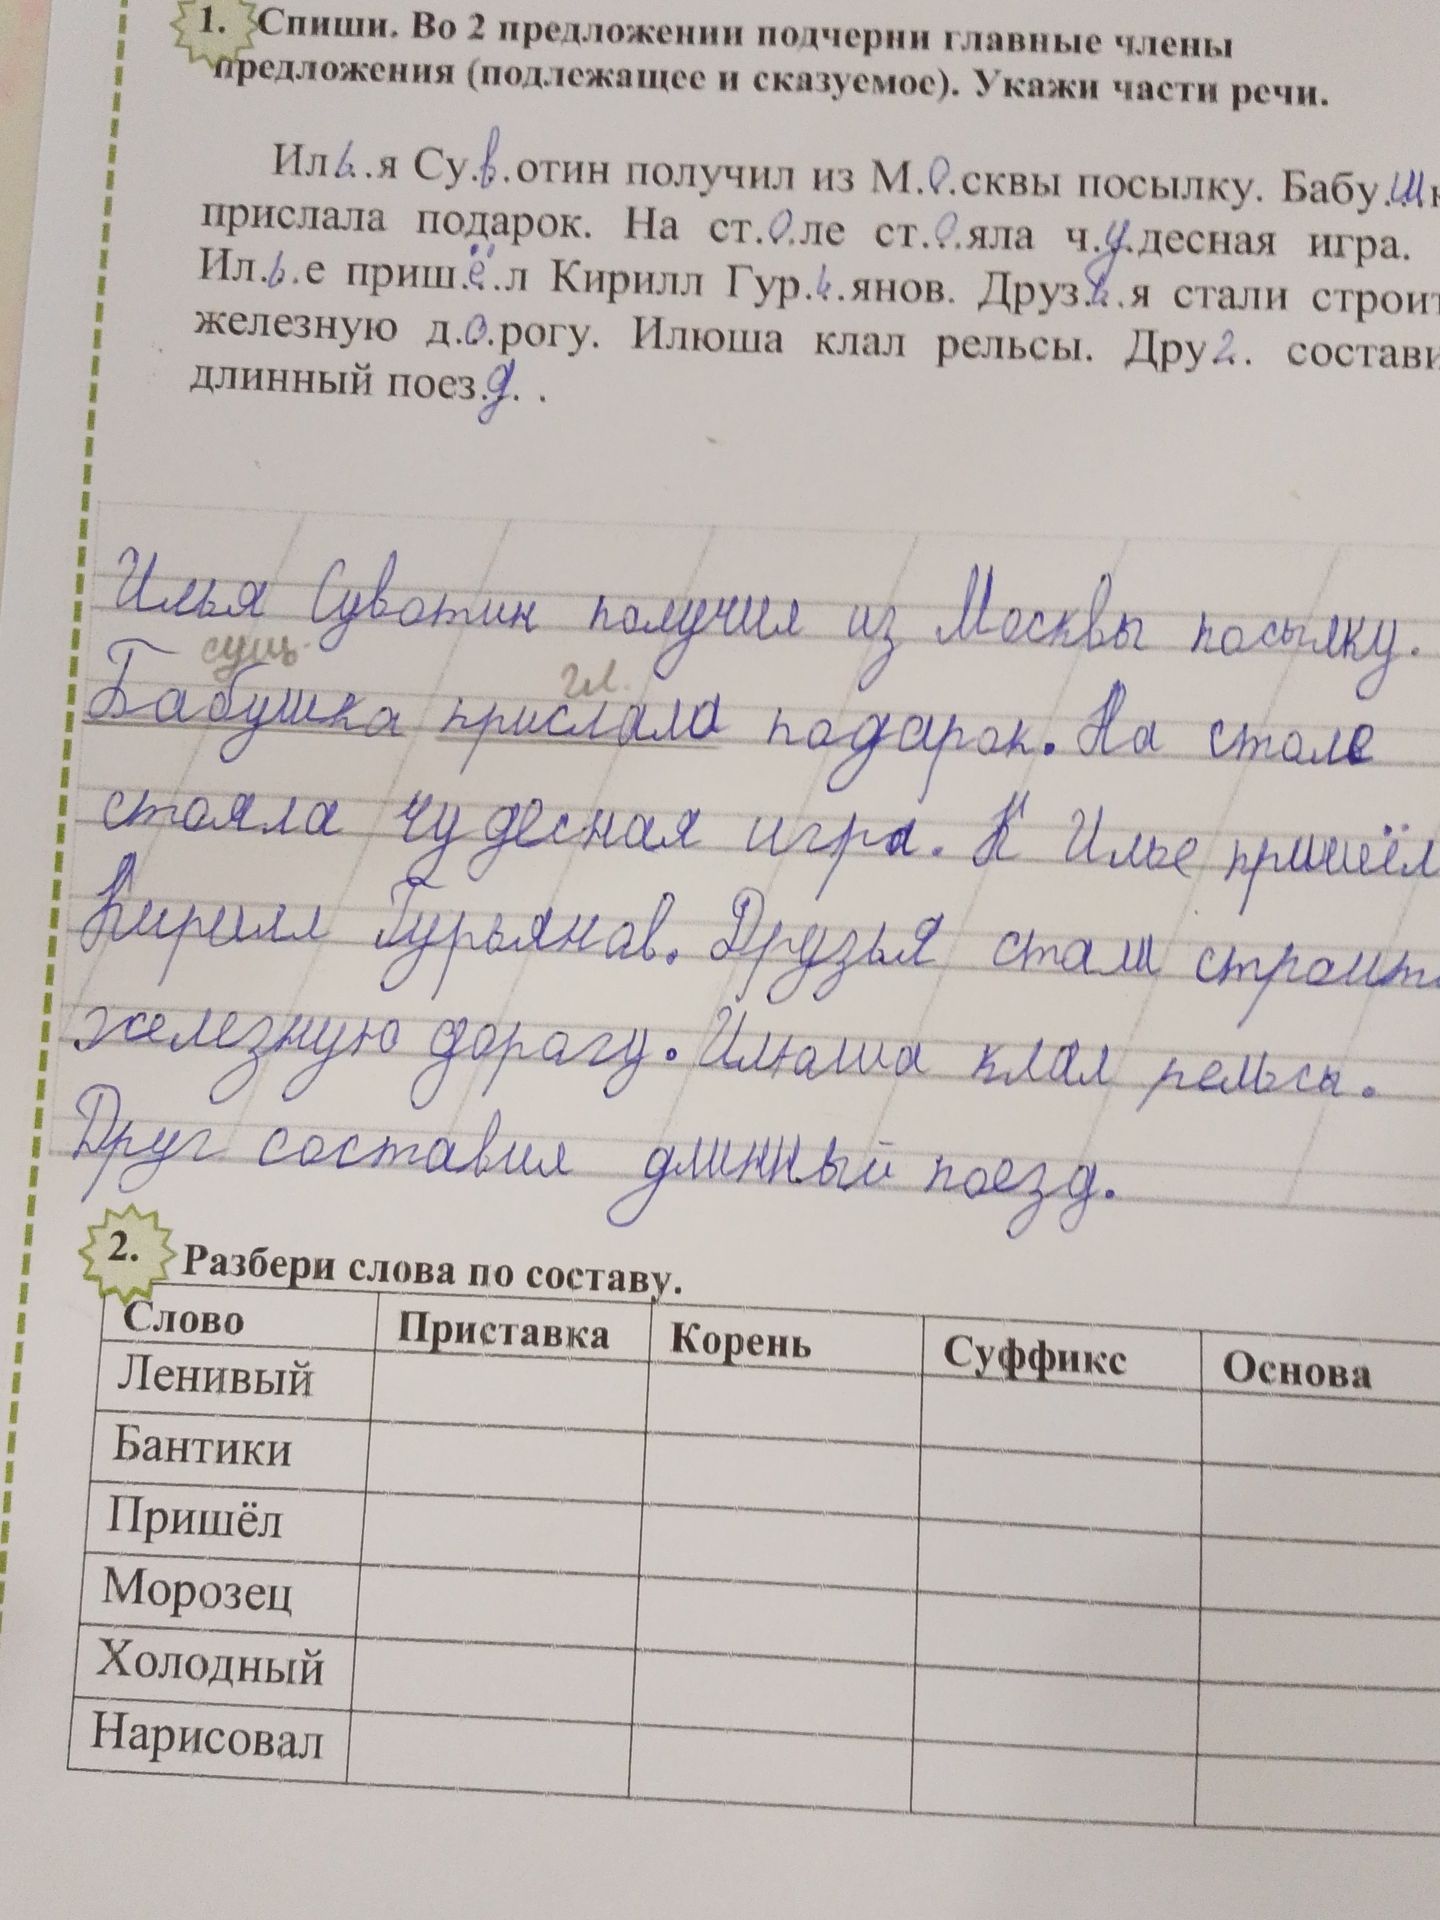 1. Спиши. Во 2 предложении подчерни главные члены
предложения (подлежащее и сказуемое). Укажи части речи.
Ил.ь.я Су.в.отин получил из М.о.сквы посылку. Бабу.шк
прислала подарок. На ст.о.ле ст.о.яла ч.у.десная игра.
Ил.ь.е приш.ё.л Кирилл Гур.ь.янов. Друз.ь.я стали строит
железную д.о.рогу. Илюша клал рельсы. Дру г. . состави
длинный поез.д. .
Илья Сувотин получил из Москвы посылку.
сущ. гл.
Бабушка прислала подарок. На столе
стояла чудесная игра. К Илье пришёл
Кирилл Гурьянов. Друзья стали строить
железную дорогу. Илюша клал рельсы.
Друг составил длинный поезд.
2. Разбери слова по составу.
Слово Приставка Корень Суффикс Основа
Ленивый
Бантики
Пришёл
Морозец
Холодный
Нарисовал